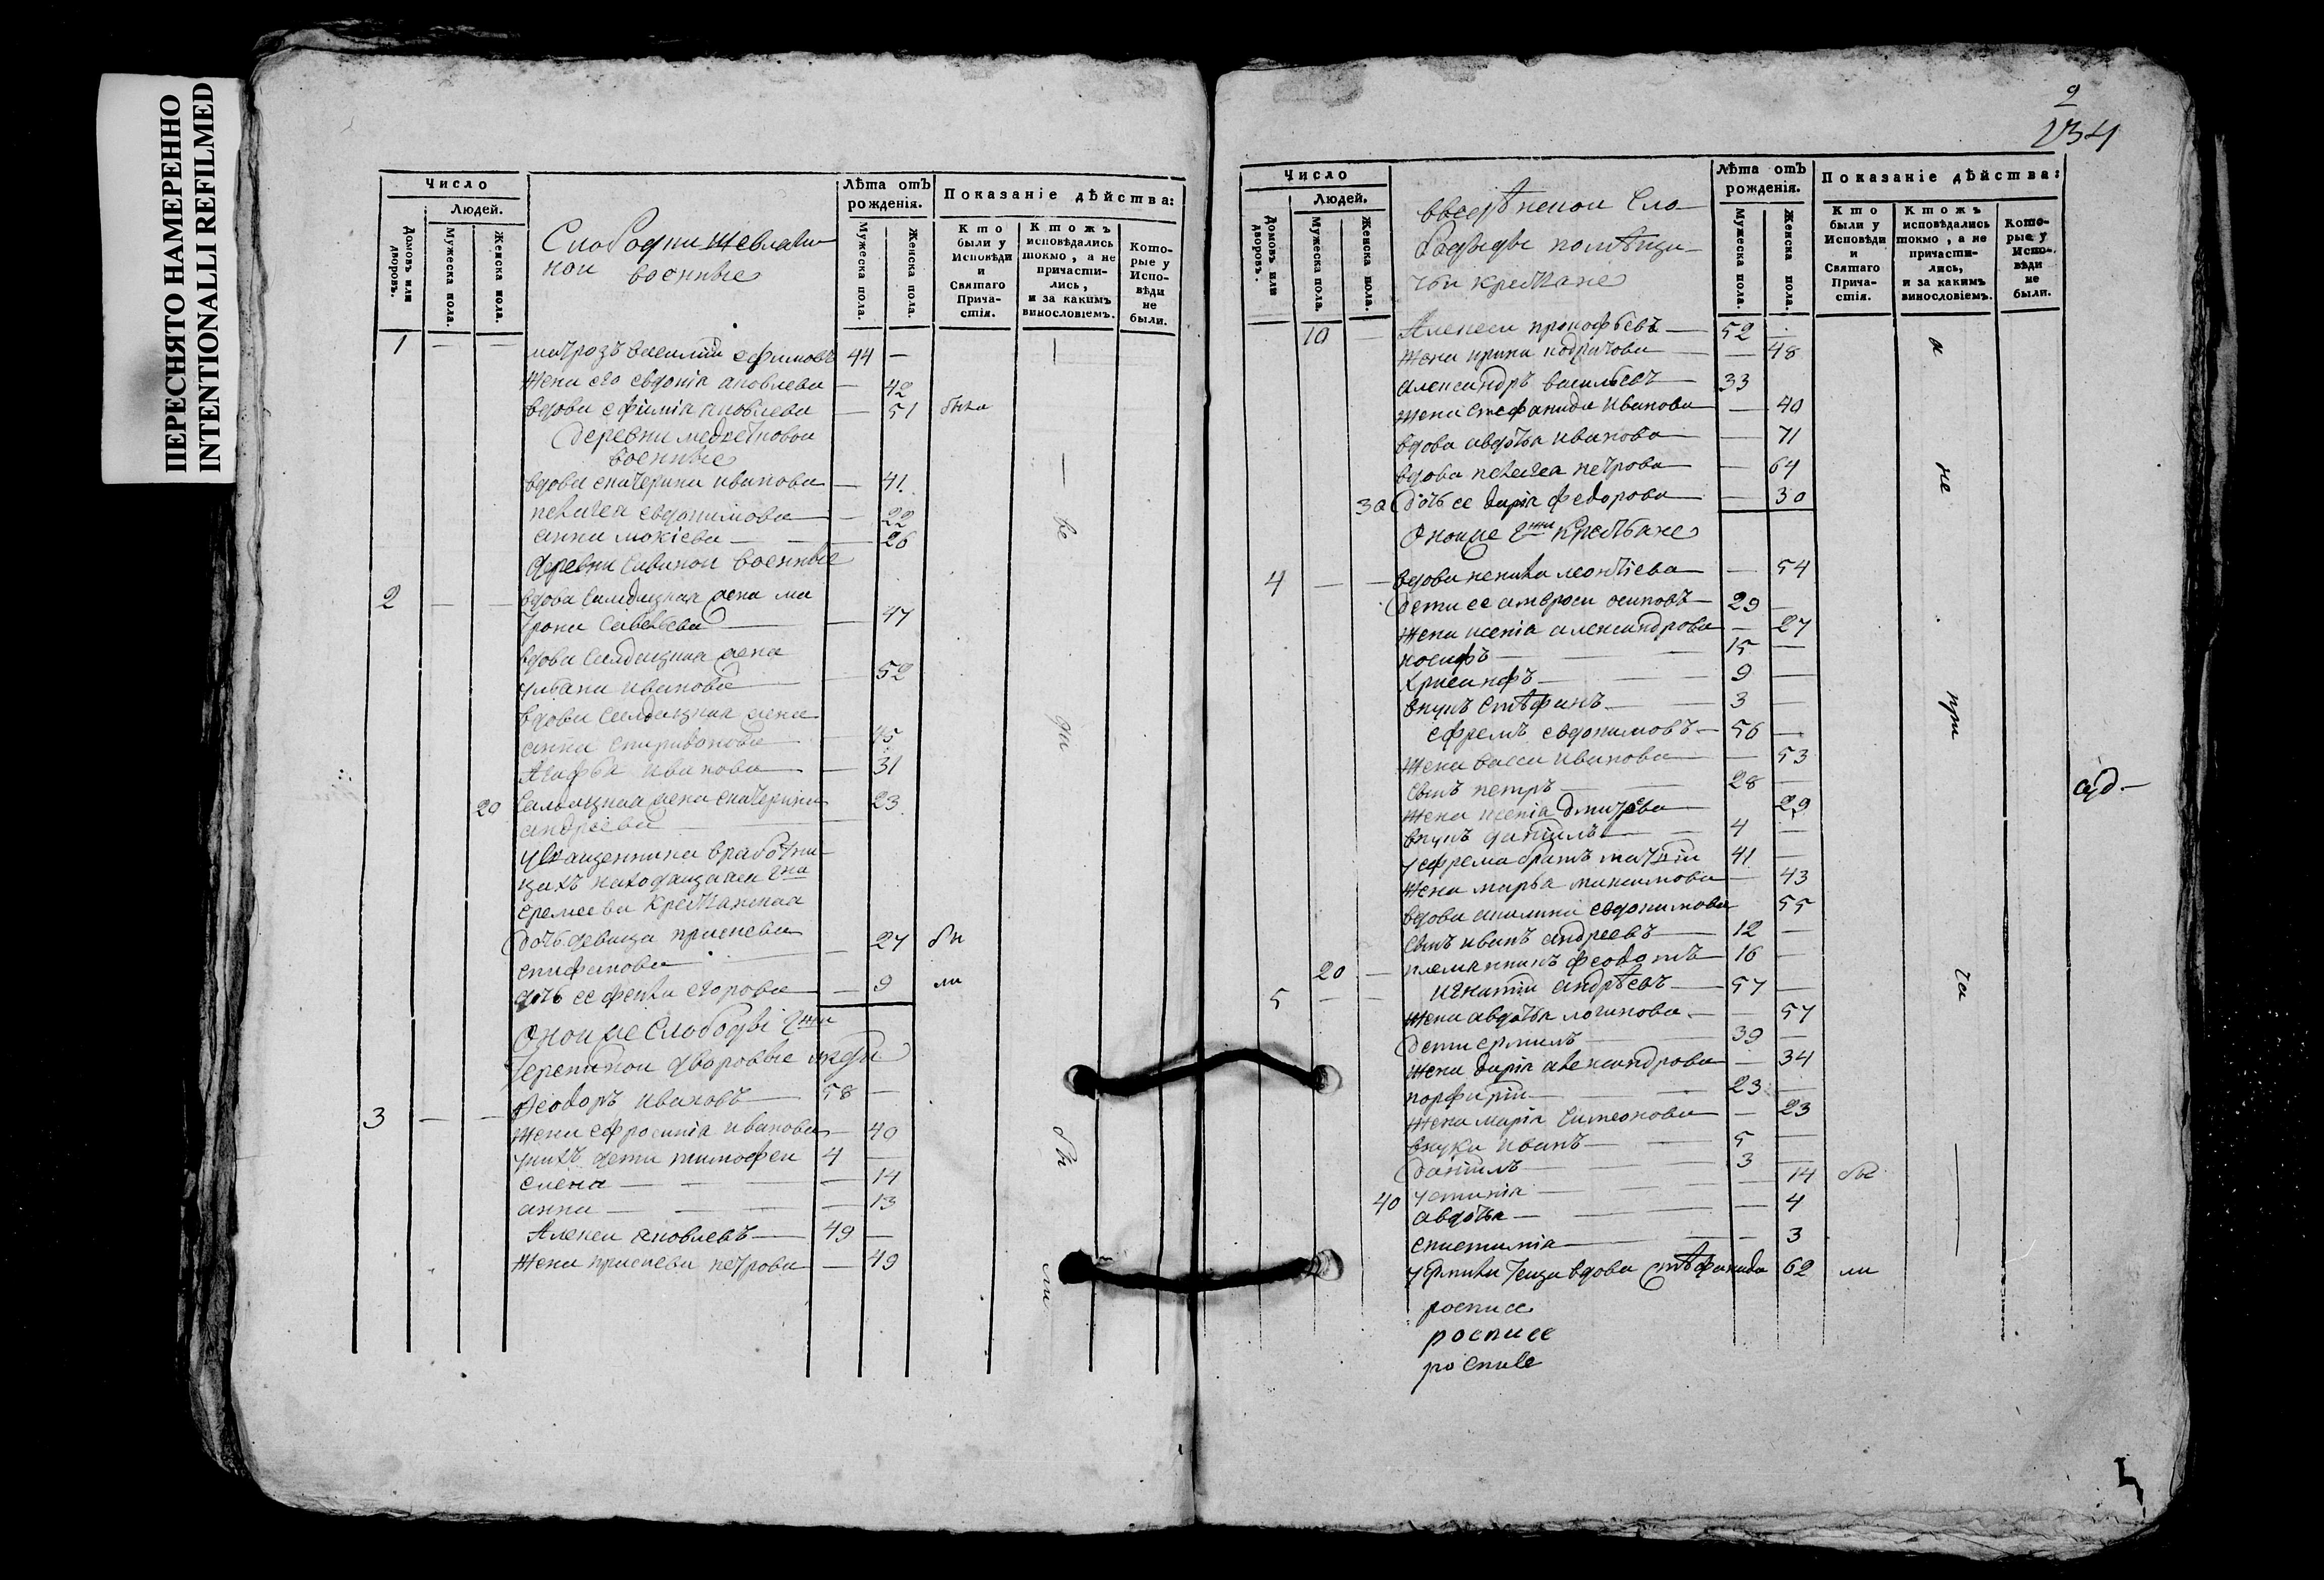 ПЕРЕСНЯТО НАМЕРЕННО
INTENTIONALLI REFILMED
Число
Людей.
Домовъ или дворовъ.
Мужеска пола.
Женска пола.
Лѣта отъ рожденія.
Мужеска пола.
Женска пола.
Показаніе дѣйства:
Кто были у Исповѣди и Святаго Причастія.
Ктожъ исповѣдались токмо, а не причастились, и за какимъ винословіемъ.
Которые у Исповѣди не были.
военные
1 — — матрозъ василий ефимовъ 44 —
жена его евдокіа яковлева — 42
вдова ефиміа яковлева — 51 была
деревни
военные
вдова екатерина иванова — 41
пелагея евдокимова — 22
анна мокіева — 26
деревни военные
2 — — вдова салдацкая жена ма
трона савельева — 47
вдова салдацкая жена
улбана иванова — 52
вдова салдацкая жена
анна спиридонова — 45
Агафья иванова — 31
20 салдацкая жена екатерина 23
андреева
у священника в работни
цахъ находящаяся гна
еремеева крестьянская
дочь девица
епифанова — 27 бы
дочь ее фекла егорова — 9 ли
Оной же слободы гжи
дворовые люди
3 — — Феодоръ ивановъ 58 —
жена ефросиніа иванова — 40
у нихъ дети тимофеи 4 —
елена — 14
анна — 13
Алексеи яковлевъ 49 —
жена петрова — 49
ве
ди
бы
ли
2
234
Число
Людей.
Домовъ или дворовъ.
Мужеска пола.
Женска пола.
Лѣта отъ рожденія.
Мужеска пола.
Женска пола.
Показаніе дѣйства:
Кто были у Исповѣди и Святаго Причастія.
Ктожъ исповѣдались токмо, а не причастились, и за какимъ винословіемъ.
Которые у Исповѣди не были.
сло
бодѣ помѣщи
чьи крестьяне
10 — Алексеи прокофьевъ 52 —
жена ирина — 48
александръ васильевъ 33
жена стефанида иванова — 40
вдова авдотья иванова — 71
вдова пелагея петрова — 64
30 дочь ее даріа федорова — 30
Оной же гжи крестьяне
4 — — вдова леонтіева — 54
дети ее амвроси осиповъ 29 —
жена ксеніа александрова — 27
иосифъ 15 —
9 —
внукъ стѣфанъ 3 —
ефремъ евдокимовъ 56 —
жена васса иванова — 53
сынъ петръ 28 —
жена ксеніа дмитрева 29
внукъ даніилъ 4 —
у ефрема братъ матѳіи 41 —
жена марья максимова — 43
вдова акилина евдокимова 55
сынъ иванъ андреевъ 12 —
20 — племянникъ феодотъ 16 —
5 — — игнатіи андрѣевъ 57 —
жена авдотья логинова — 57
дети ермилъ 39 —
жена даріа александрова — 34
порфиріи 23 —
жена маріа симеонова — 23
внуки иванъ 5 —
даніилъ 3 —
устиніа — 14 бы
40 авдотья — 4
епистиміа — 3
у теща вдова стѣфанида 62 ли
росписе
росписе
росписе
а
не
при
ча